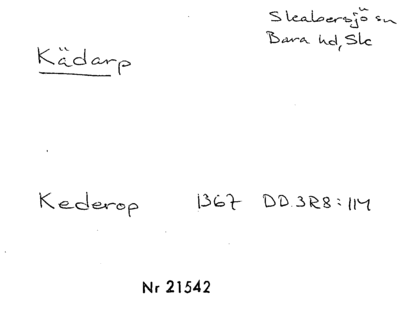 Skabersjö sn
Bara hd, Sk
Kädarp
Kederop 1367 DD.3R8:114
Nr 21542